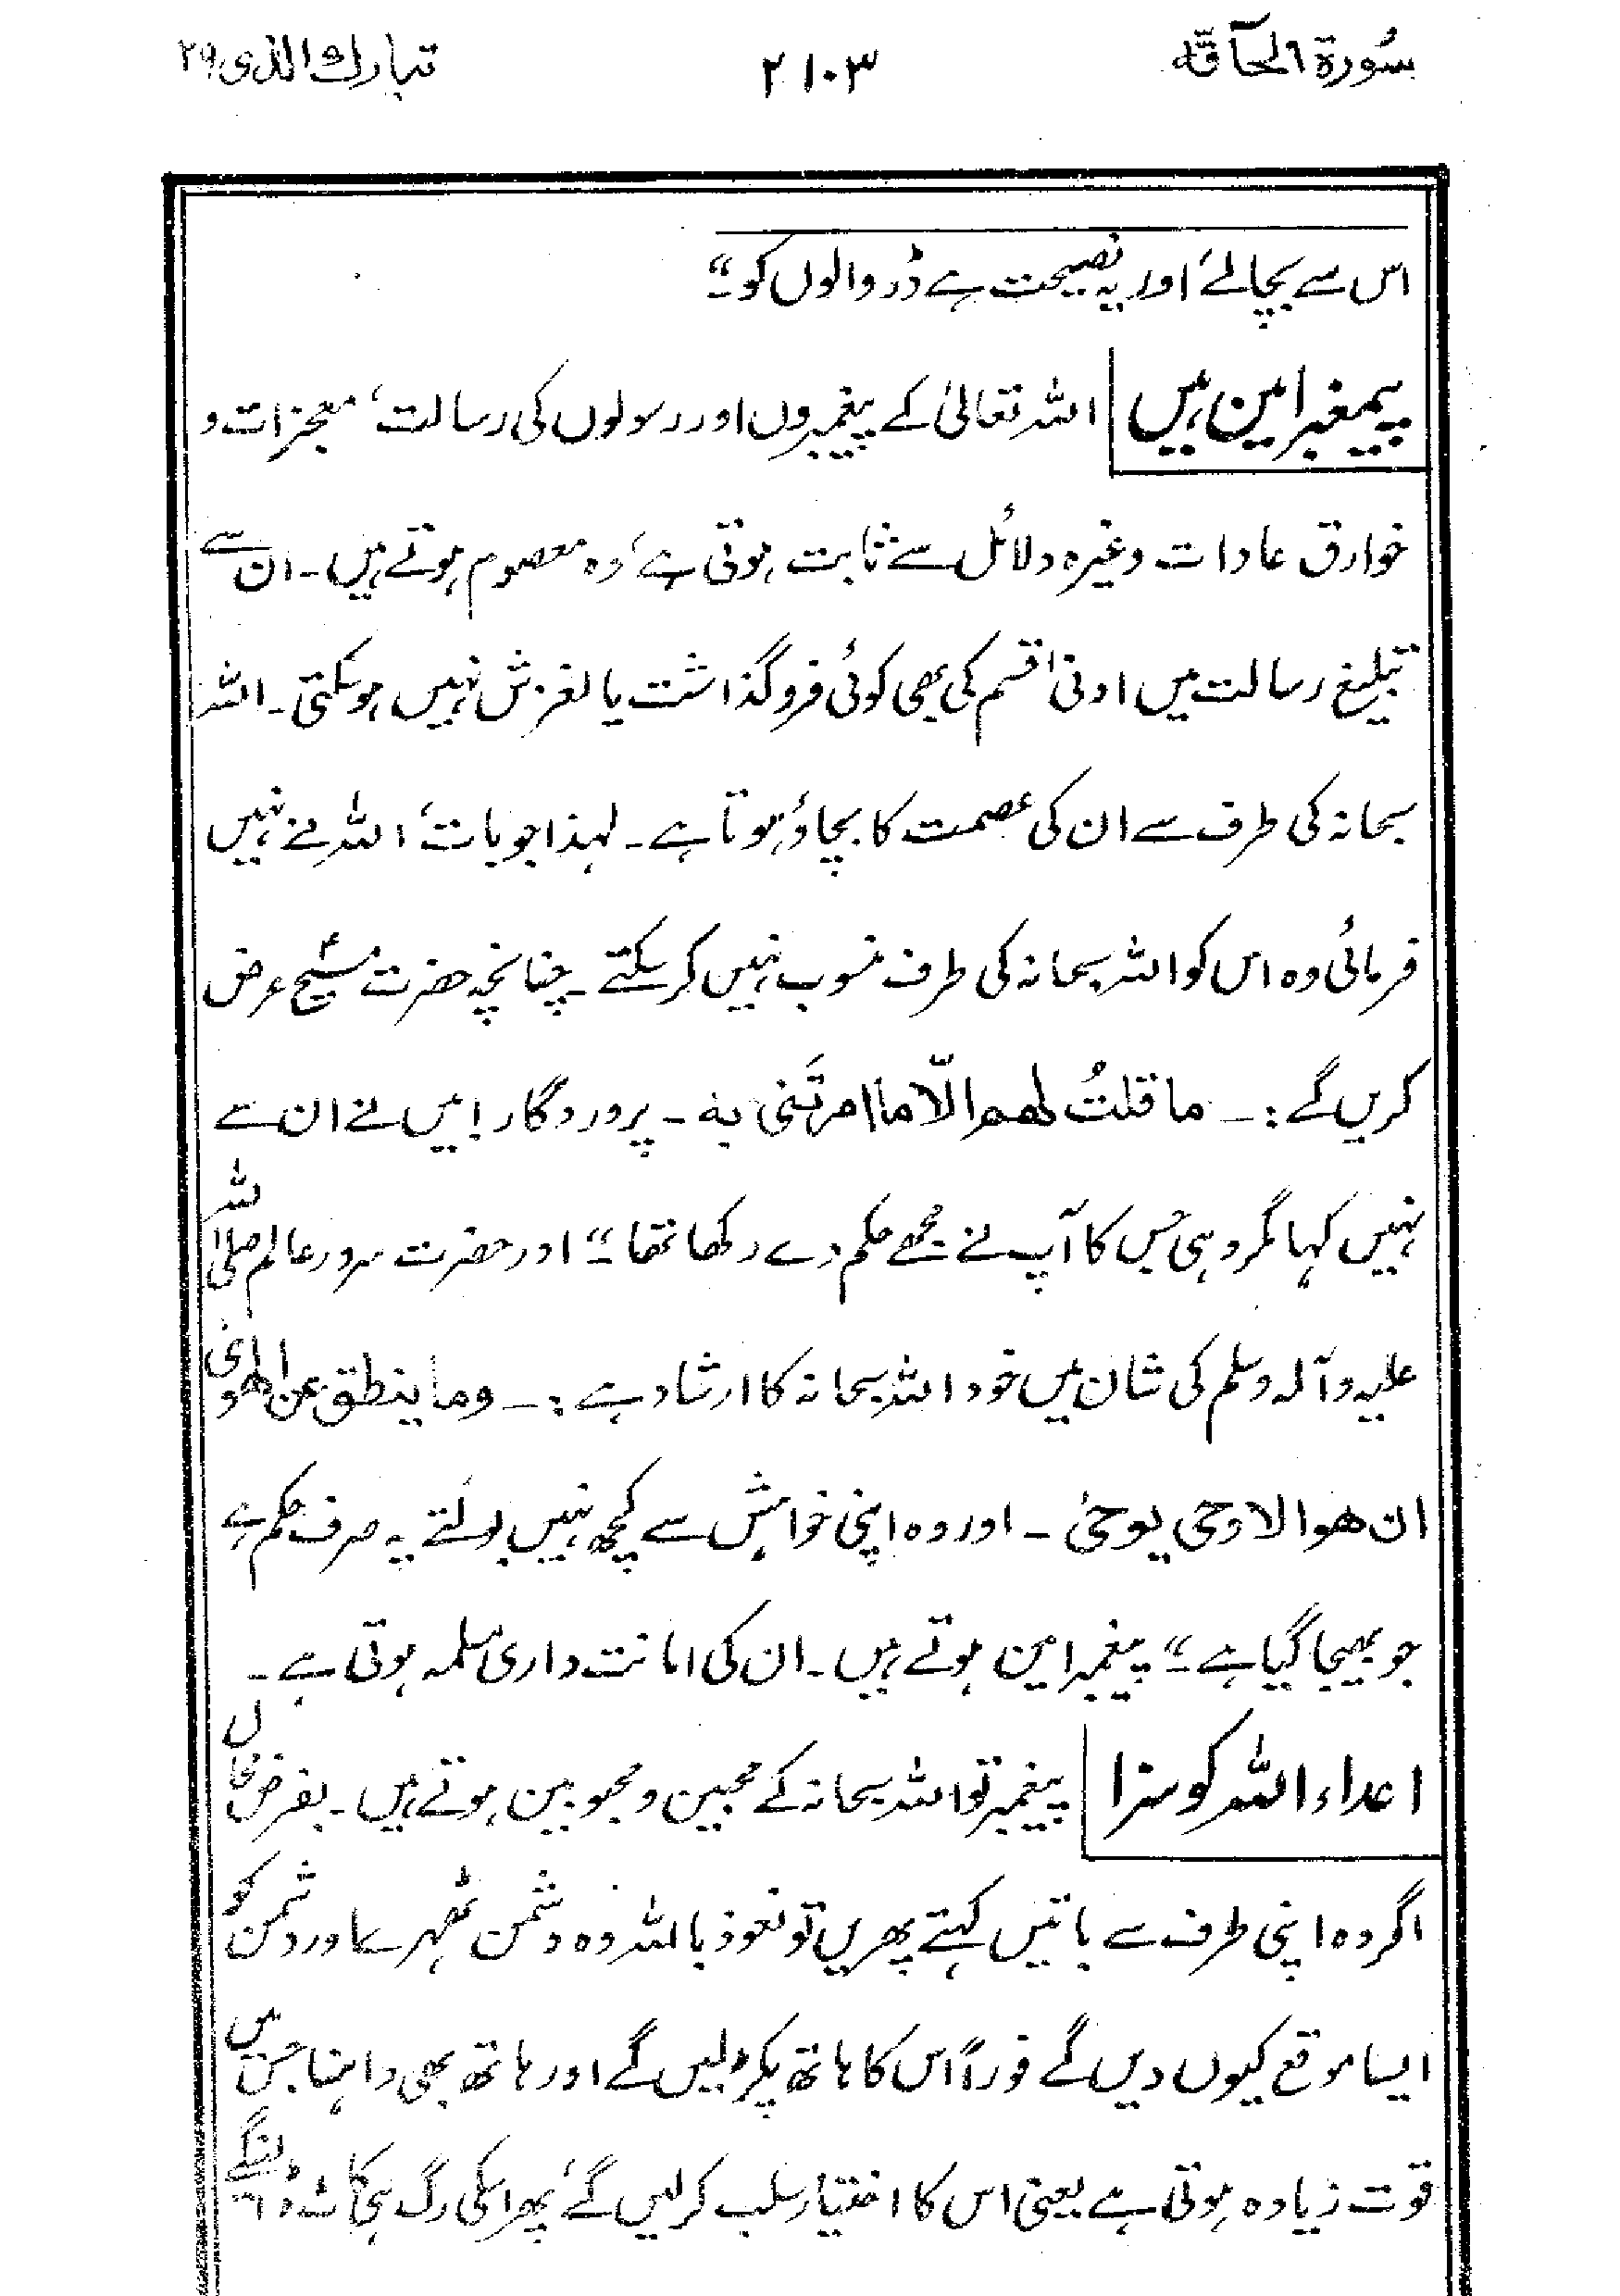 سُورۃ الحآقّہ ۲۱۰۳ تبارک الذی ۲۹
اس سے بچالے، اور یہ نصیحت ہے ڈر والوں کو۔“
پیمغبر امین ہیں اللہ تعالیٰ کے پیغمبروں اور رسولوں کی رسالت، معجزات و
خوارق عادات وغیرہ دلائل سے ثابت ہوتی ہے، وہ معصوم ہوتے ہیں۔ ان سے
تبلیغ رسالت میں ادنیٰ قسم کی بھی کوئی فروگذاشت یا لغزش نہیں ہوسکتی۔ اللہ
سبحانہ کی طرف سے ان کی عصمت کا بچاؤ ہوتا ہے۔ لہذا جو بات، اللہ نے نہیں
فرمائی وہ اس کو اللہ سبحانہ کی طرف منسوب نہیں کرسکتے۔ چنانچہ حضرت مسیحؑ عرض
کریں گے :۔ ما قلتُ لھم الّا ما امرتَنی بہ ۔ پروردگار! میں نے ان سے
نہیں کہا مگر وہی جس کا آپ نے مجھے حکم دے رکھا تھا۔“ اور حضرت سرور عالم صلی اللہ
علیہ وآلہ وسلم کی شان میں خود اللہ سبحانہ کا ارشاد ہے :۔ وما ینطق عن الھویٰ
ان ھو الا وحی یوحیٰ ۔ اور وہ اپنی خواہش سے کچھ نہیں بولتے یہ صرف حکم ہے
جو بھیجا گیا ہے۔“ پیغمبر امین ہوتے ہیں۔ ان کی امانت داری مسلمہ ہوتی ہے۔
اعداء اللہ کو سزا پیغمبر تو اللہ سبحانہ کے محبین و محبوبین ہوتے ہیں۔ بفرض محال
اگر وہ اپنی طرف سے باتیں کہتے پھریں تو نعوذ باللہ وہ دشمن ٹھہرے اور دشمن کو
ایسا موقع کیوں دیں گے فوراً اس کا ہاتھ پکڑ لیں گے اور ہاتھ بھی داہنا جس میں
قوت زیادہ ہوتی ہے یعنی اس کا اختیار سلب کرلیں گے، پھر اسکی رگ ہی کاٹ ڈالینگے